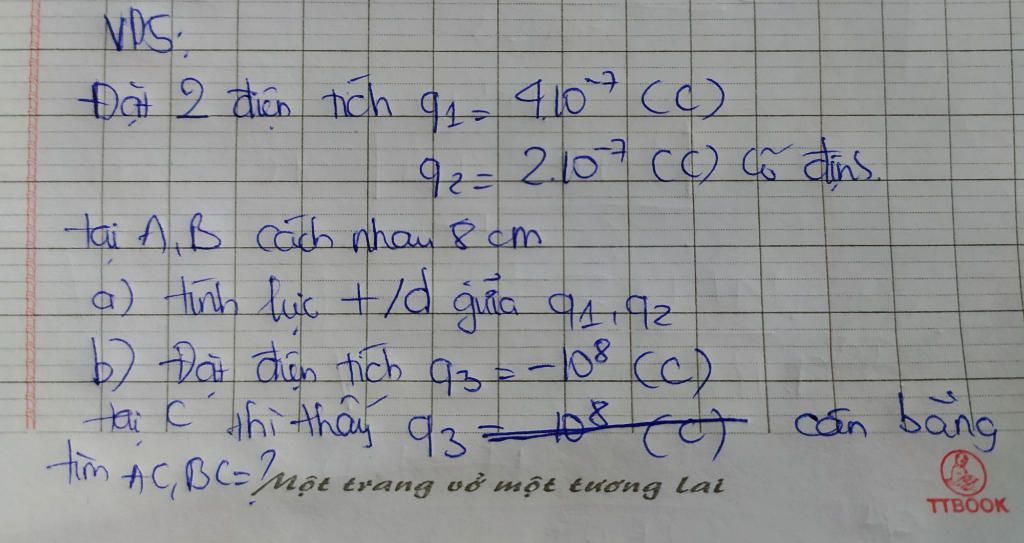 VD5:
Đặt 2 điện tích q1 = 4.10⁻⁷ (C)
q2 = 2.10⁻⁷ (C) cố định.
tại A, B cách nhau 8 cm
a) tính lực t/d giữa q1, q2
b) Đặt điện tích q3 = -10⁸ (C)
tại C thì thấy q3 = 10⁸ (C) cân bằng
tìm AC, BC = ?
Một trang vở một tương lai
TTBOOK